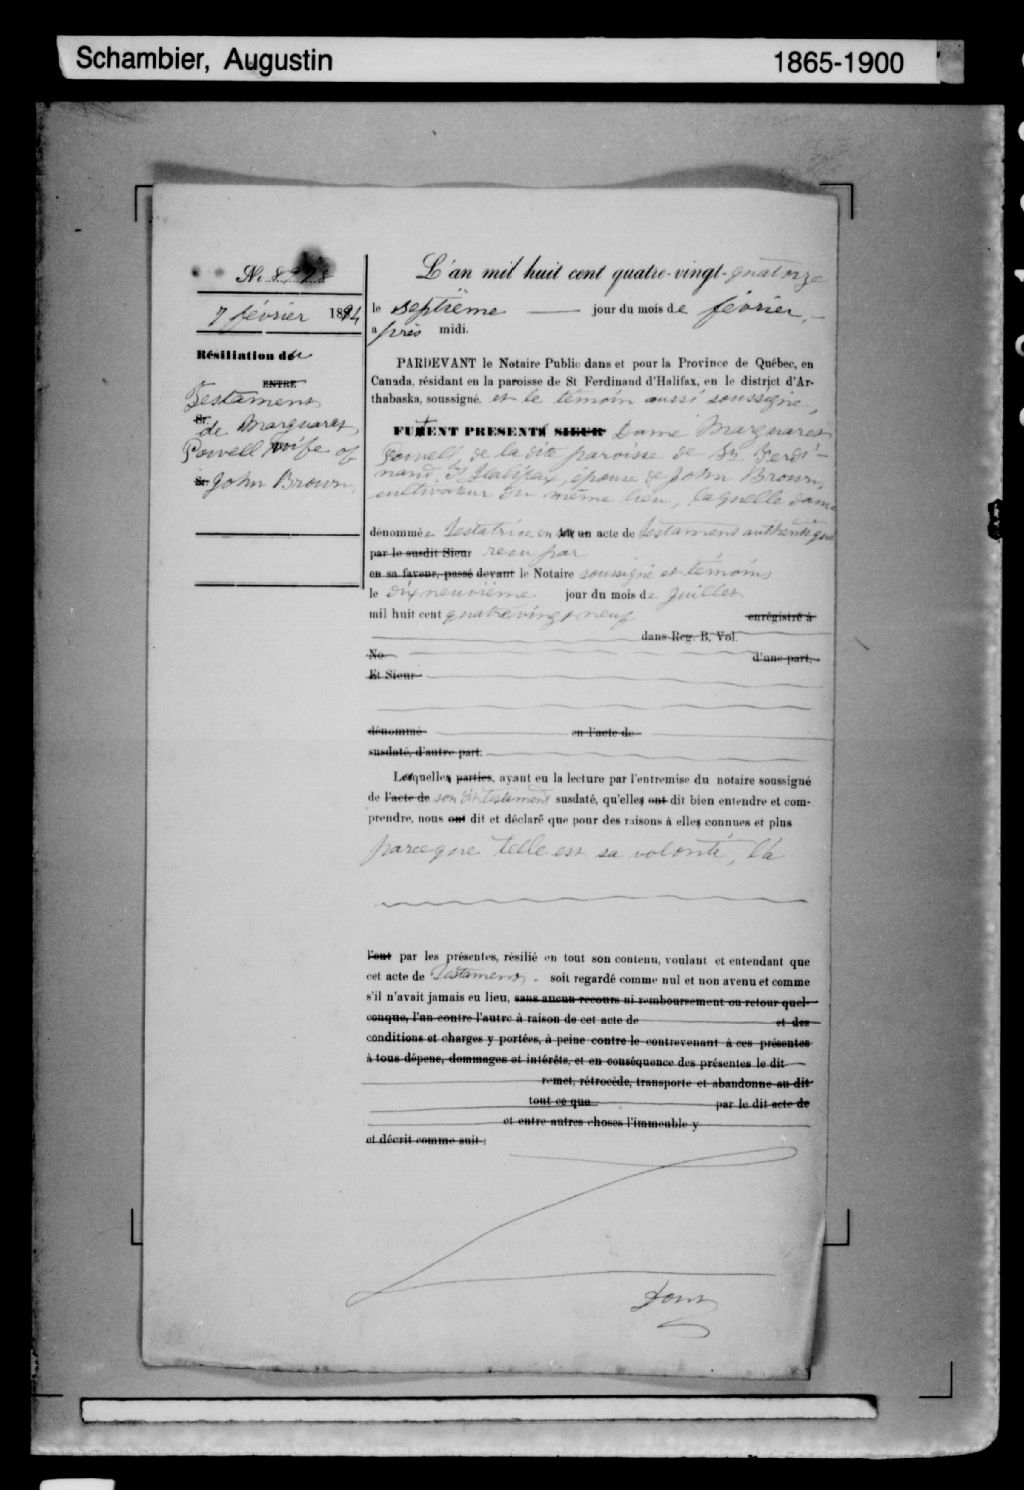 Schambier, Augustin 1865-1900
No 8978
7 février 1894
Résiliation du
ENTRE
Testament
Sr.
de Margaret
Powell wife of
Sr. John Brown.
L'an mil huit cent quatre-vingt-quatorze
le septième jour du mois de février,
après midi.
PARDEVANT le Notaire Public dans et pour la Province de Québec, en
Canada, résidant en la paroisse de St Ferdinand d'Halifax, en le district d'Ar-
thabaska, soussigné. et le témoin aussi soussigné,
FUT PRESENTE SIEUR Dame Margaret
Powell, de la dite paroisse de St. Ferdi-
nand d'Halifax, épouse de John Brown,
cultivateur du même lieu, laquelle dame
dénommée testatrice en un acte de testament authentique
par le susdit Sieur reçu par
en sa faveur, passé devant le Notaire soussigné et témoins
le dixneuvième jour du mois de Juillet
mil huit cent quatrevingt neuf enrégistré à
dans Reg. B. Vol.
No d'une part,
Et Sieur
dénommé en l'acte de
susdaté, d'autre part.
Lesquelles parties, ayant eu la lecture par l'entremise du notaire soussigné
de l'acte de son dit testament susdaté, qu'elles ont dit bien entendre et com-
prendre, nous ont dit et déclaré que pour des raisons à elles connues et plus
parceque telle est sa volonté, l'a
l'ont par les présentes, résilié en tout son contenu, voulant et entendant que
cet acte de testament soit regardé comme nul et non avenu et comme
s'il n'avait jamais eu lieu, sans aucun recours ni remboursement ou retour quel-
conque, l'un contre l'autre à raison de cet acte de et des
conditions et charges y portées, à peine contre le contrevenant à ces présentes
à tous dépens, dommages et intérêts, et en conséquence des présentes le dit
remet, rétrocède, transporte et abandonne au dit
tout ce que par le dit acte de
et entre autres choses l'immeuble y
et décrit comme suit :
Dont